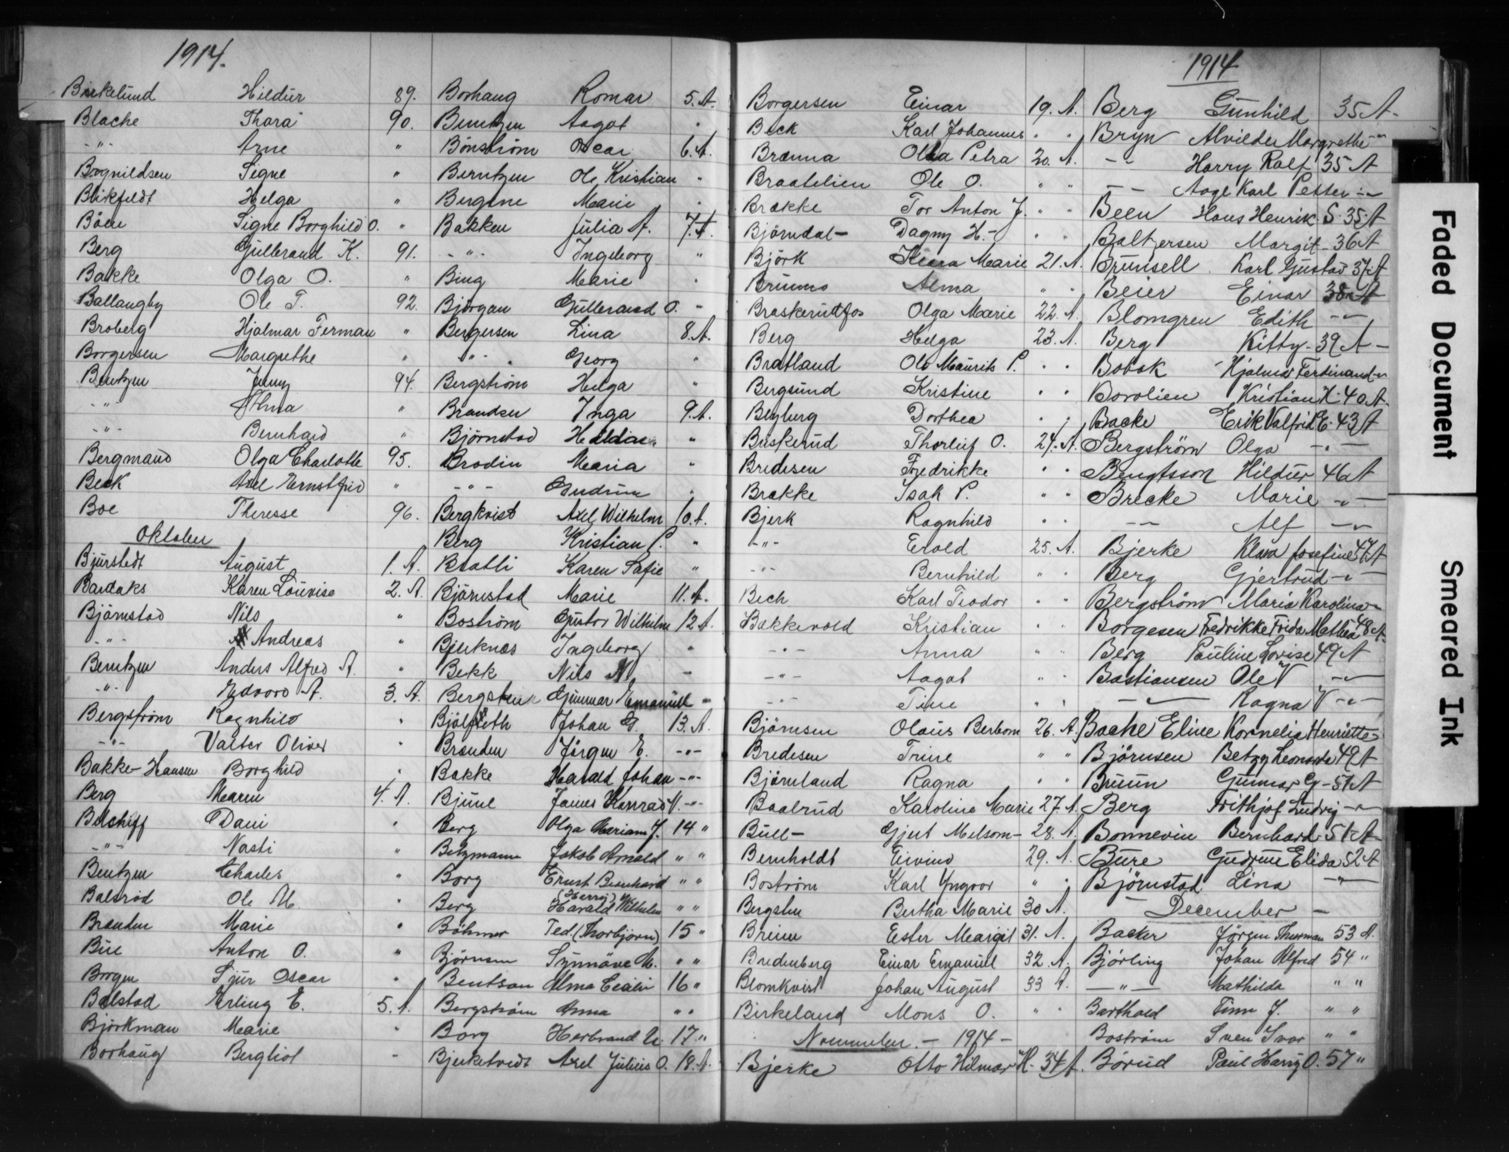 1914.
Birkelund Hildur 89.
Blache Thora 90.
-"- Arne "
Bognildsen Signe "
Blikfeldt Helga "
Både Signe Borghild O. "
Berg Gulbrand K. 91.
Bakke Olga O. "
Ballangby Ole T. 92.
Broberg Hjalmar Ferman "
Borgersen Margrethe "
Berntzen Jenny 94.
-"- Alma "
-"- Bernhard "
Bergmann Olga Charlotte 95.
Beck Axel Ernstfrid "
Boe Theresse 96.
Oktober
Bjurstedt August 1. A.
Bardaks Karen Lovise 2. A.
Bjørnstad Nils "
-"- Andreas "
Berntzen Anders Alfred A. "
-"- Edvard A. 3. A.
Bergstrøm Ragnhild "
-"- Valter Oliver
Bakke-Hansen Borghild "
Berg Maren 4. A.
Belsheff Davi "
-"- Nasti "
Bentzen Charles "
Balsrød Ole M "
Braaten Marie "
Bue Anton O. "
Borgen Sjur Oscar "
Balstad Erling E. 5. A.
Bjørkman Marie "
Borhaug Bergliot "
Borhaug Romar 5. A.
Berntzen Aagot "
Bonstrøm Oscar 6. A.
Berntzen Ole Kristian "
Bergene Marie "
Bakken Julia A. 7. A.
-"- Ingeborg "
Bing Marie "
Bjørgan Gulbrand O. "
Bergersen Lina 8. A.
-"- Georg "
Bergstrøm Helga "
Brandser Inga 9. A.
Bjørnstad Haldis "
Brodin Maria "
-"- Gudrun "
Bergkvist Axel Wilhelm 10. A.
Berg Kristian P. "
Bratli Karen Sofie "
Bjørnstad Marie 11. A.
Bostrøm Gustav Wilhelm 12 A.
Bjerknes Ingeborg "
Bekk Nils N. "
Bergsten Gunnar Emanuell "
Johan G. 13. A.
Brenden Jørgen E. -"-
Bakke Harald Johan -"-
Bjune James Konrad A. -"-
Berg Olga Mariam J. 14 "
Betzmann Jakob Arnold " "
Borg Ernst Bernhard " "
(Herry)
Berg Harald Wilhelm " "
Böhmer Ted (Thorbjørn) 15 "
Bjørnsen Synnøve M. " "
Bentson Alma 16 "
Bergstrøm Anna " "
Borg Herbrand U 17 "
Bjerketvedt Axel Julius O. 18. A.
1914
Borgersen Einar 19. A.
Beck Karl Johannes " "
Brænna Olea Petra 20. A.
Braatelien Ole O. " "
Brække Tor Anton J. " "
Bjørndal- Dagny H.- " "
Björk Marie 21. A.
Bruums Alma " "
Braskerudfos Olga Marie 22. A.
Berg Helga 23. A.
Bratland Ole Maurits P. " "
Bergsund Kristine " "
Dorthea " "
Buskerud Thorleif O. 24. A.
Bredesen Fredrikke " "
Brække Isak P. " "
Bjerk Ragnhild " "
-"- Erold 25. A.
-"- Bernhild " "
Bech Karl Teodor " "
Bakkevold Kristian " "
-"- Anna " "
-"- Aagot " "
-"- Tine " "
Bjørnsen Olaus Berbom 26. A.
Bredesen Trine " "
Bjørneland Ragna " "
Baalrud Karoline Marie 27. A.
Bull- Gjert Melsom- 28. A.
Bernholdt Eivind 29. A.
Bostrøm Karl Yngvar " "
Bergsten Bertha Marie 30 A.
Brien Ester Margit 31. A.
Bredenberg Einar Emanuel 32. A.
Blomkvist Johan August 33 A.
Birkeland Mons O. " "
November - 1914 -
Bjerke Otto Hilmar H. 34 A.
Berg Gunhild 35 A-
Bryn Alvilde Margrethe -"-
-"- Harry Ralf 35 A
-"- Aage Karl Petter -"-
Been Hans Henrik S. 35. A
Baltzersen Margit 36 A
Brunsell Karl Gustav 37 A
Beier Einar 38 A
Blomgren Edith -"-
Berg Kitty 39 A-
Bobak Hjalmar Ferdinand -"-
Borolien Kristian H. 40 A
Backe Erik Valfrid E. 43 A
Bergström Olga -"-
Bengtsson Hildur 46 A
Brecke Marie -"-
-"- Alf -"-
Bjerke Klara Josefine 47 A
Berg Gjertrud -"-
Bergström Maria Karolina -"-
Borgesen Fredrikke Frida Mathea 48 A
Berg Pauline Lovise 49 A
Bastiansen Ole V -"-
-"- Ragna V -"-
Backe Eline Kornelia Henriette -"-
Bjørnsen Betzy Leonarda 49 A
Bruun Gunnar G- 51 A
Berg Frithjof Ludvig -"-
Bonnevin Bernhard 51 A
Bure Gudrun Elida 52 A
Bjørnstad Lina -"-
- December -
Backer Jørgen Thurman 53 A.
Bjørling Johan Alfred 54 "
-"- Mathilde " "
Barthold Finn J. " "
Bostrøm Sven Ivar " "
Børud Paul Harry O. 57 "
Faded Document
Smeared Ink